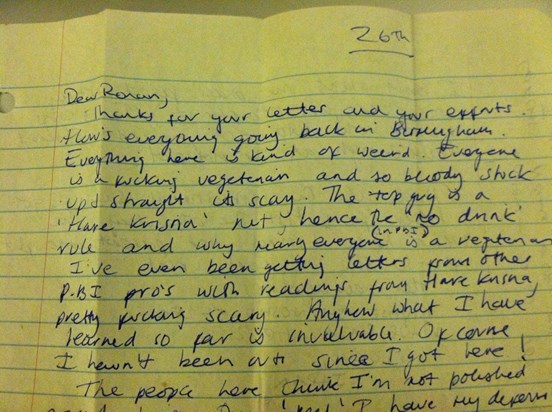 26th
Dear Ronan,
Thanks for your letter and your efforts.
How's everything going back in Birmingham.
Everything here is kind of weird. Everyone
is a fucking vegetarian and so bloody stuck
up & straight its scary. The top guy is a
'Hare Krisna' nut, hence the no drink
rule and why nearly everyone (in PBI) is a vegetarian
I've even been getting letters from other
P.B.I pro's with readings from Hare Krisna,
pretty fucking scary. Anyhow what I have
learned so far is invaluable. Of course
I haven't been out since I got here!
The people here think I'm not polished
I have my